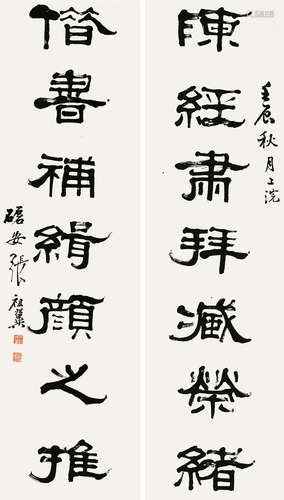 陳經肅拜臧榮緒
壬辰秋月上浣
借書補緝顏之推
安張祖翼